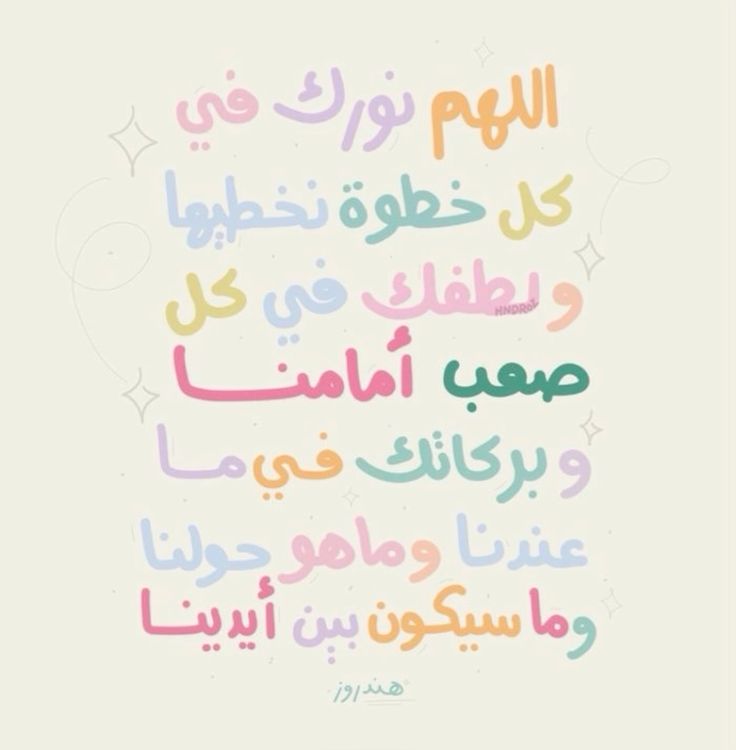 اللهم نورك في
كل خطوة نخطيها
ولطفك في كل
HNDROZ
صعب أمامنا
وبركاتك في ما
عندنا وماهو حولنا
وما سيكون بين أيدينا
هندروز